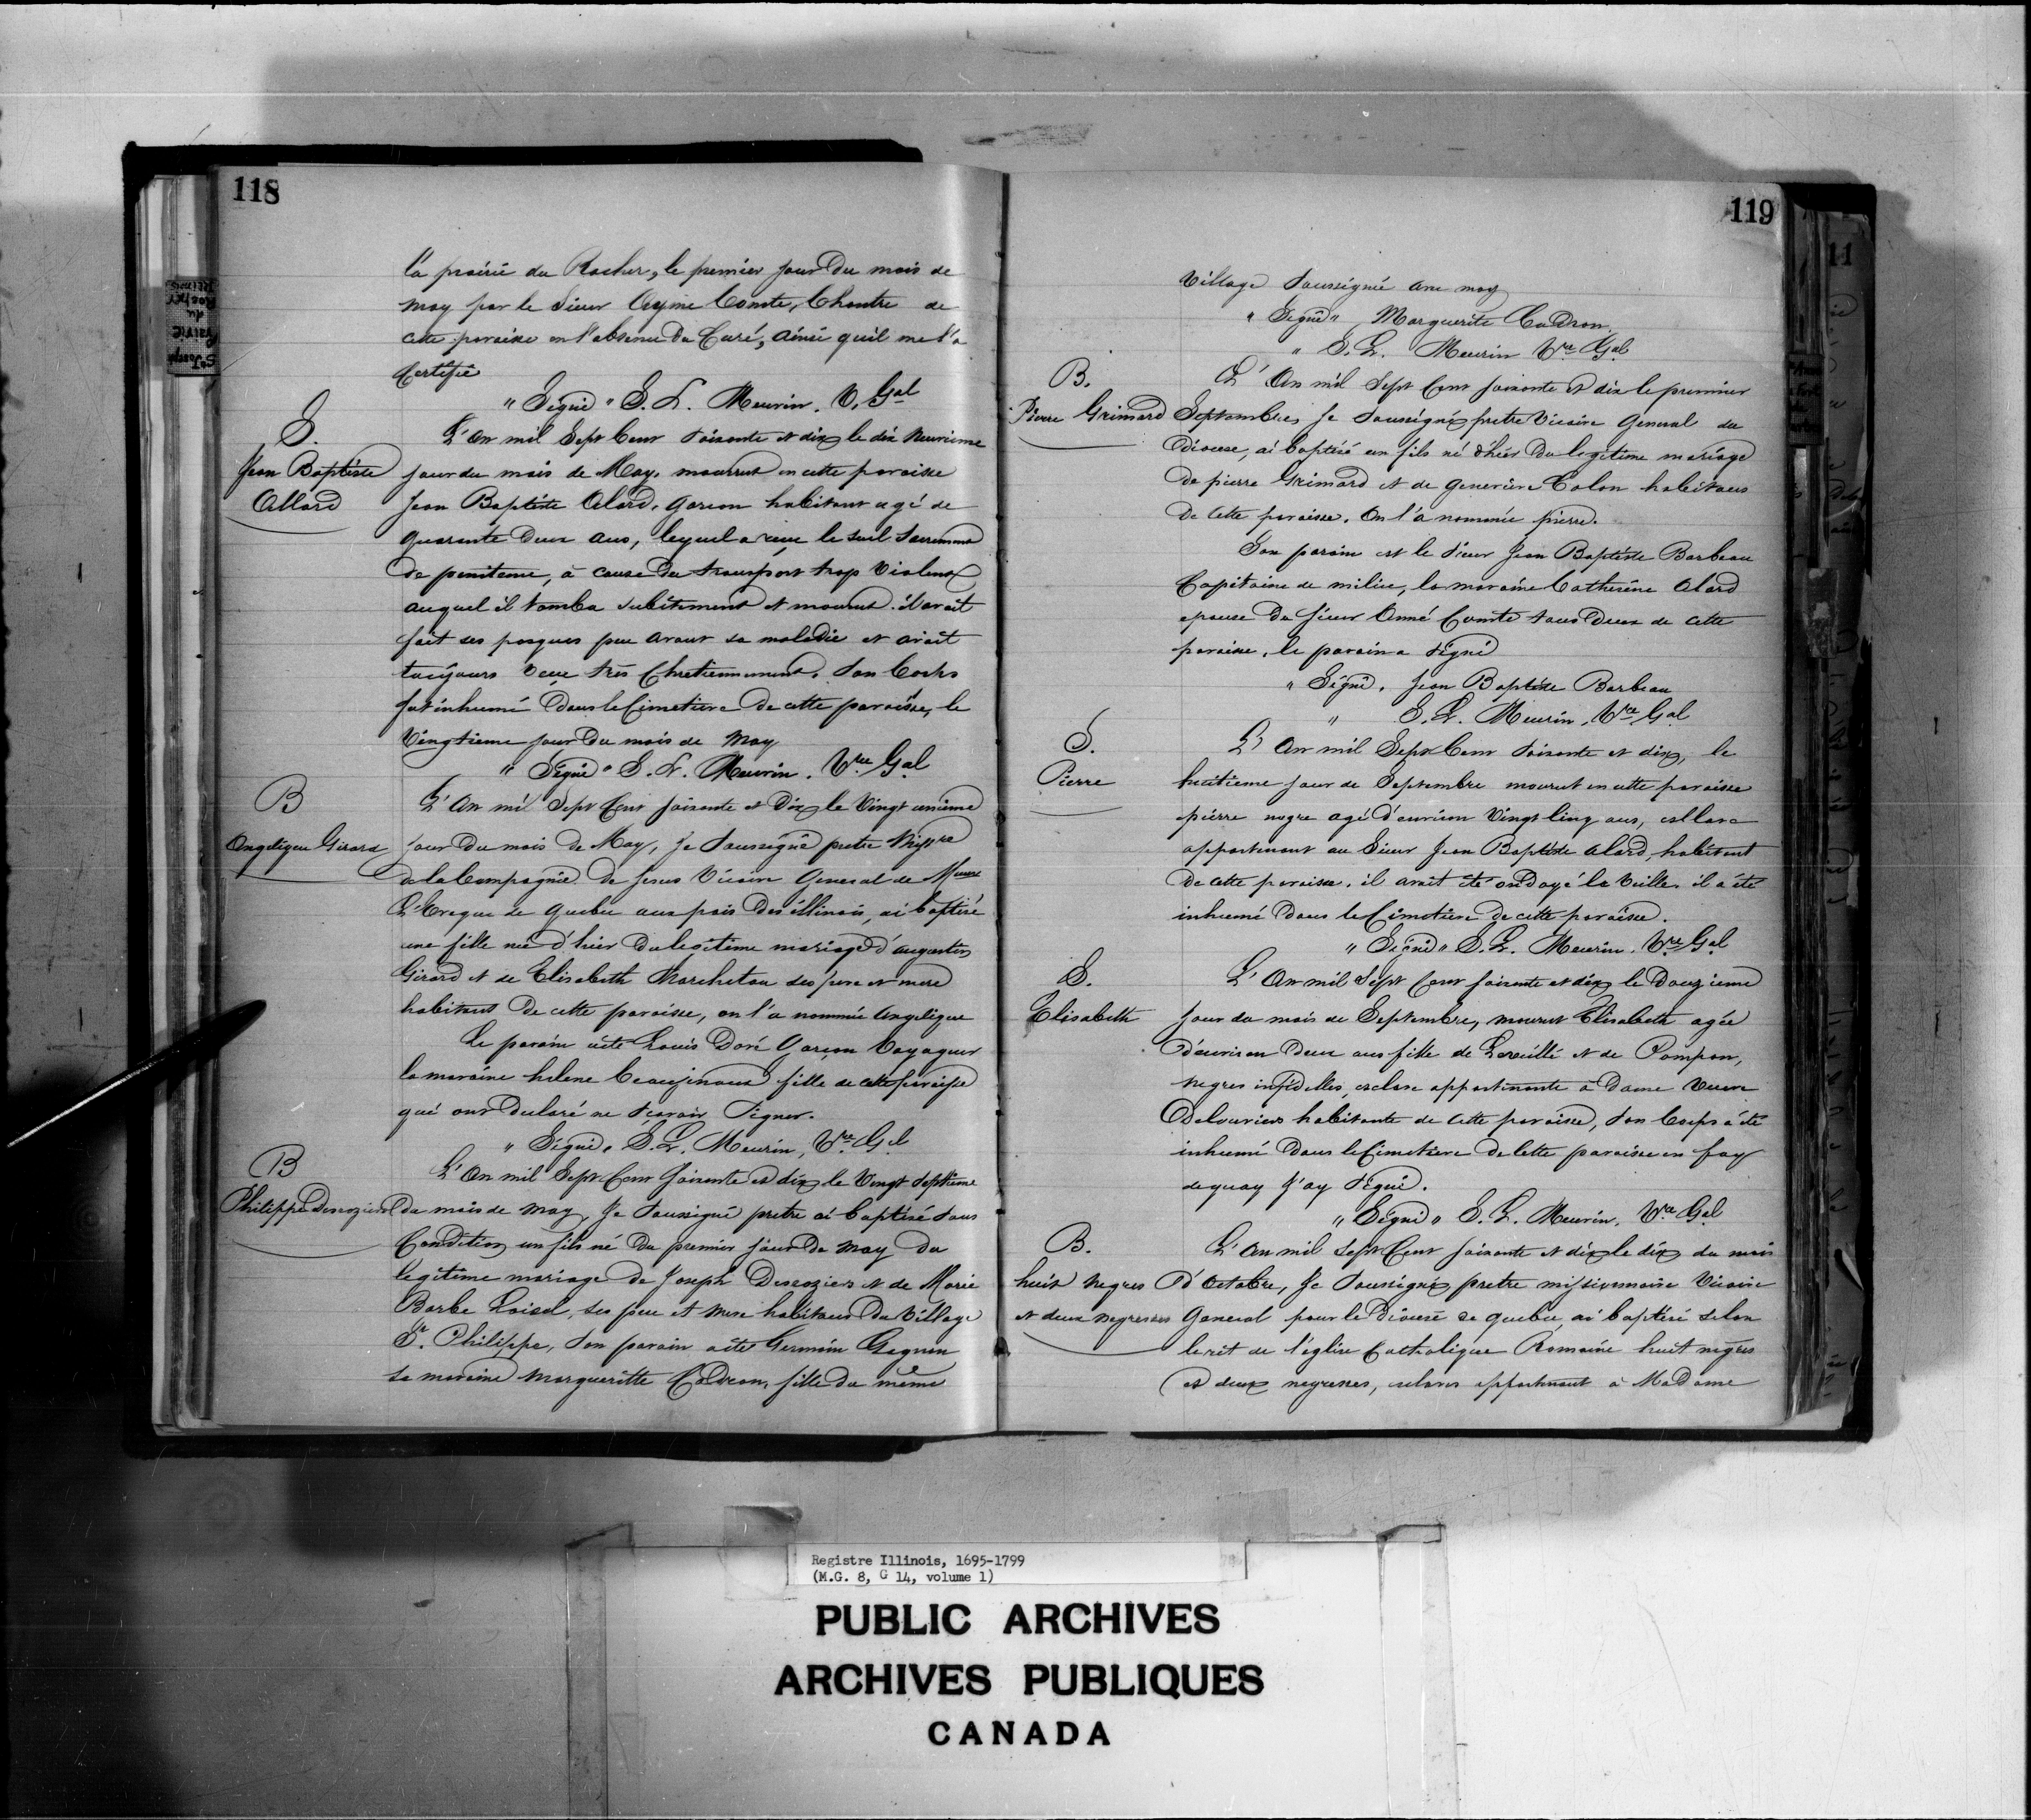 118
la prairie du Rocher, le premier jour du mois de
may par le Sieur Ayme Comte, Chantre de
cette paroisse en l'absence du Curé, ainsi qu'il me l'a
Certifié
" Signé " S. L. Meurin. V. Gal
S.
Jean Baptiste
Allard
L'an mil Sept Cent soixante et dix le dix neuvieme
jour du mois de May, mourrut en cette paroisse
Jean Baptiste Alard, garcon habitant agé de
quarante deux ans, lequel a reçu le seul Sacrement
de penitence, à cause du transport trop violent
auquel il tomba subitement et mourut. il avait
fait ses pasques peu avant sa maladie et avait
toujours vecu très Chretiennement. Son Corps
fut inhumé dans le Cimetiere de cette paroisse, le
Vingtieme jour du mois de May
" Signé " S. L. Meurin. Vre Gal
B
Angelique Girard
L'an mil Sept Cent soixante et Dix le Vingt unieme
jour du mois de May, Je Soussigné pretre Missre
de la Compagnie de Jesus Vicaire General de
L'Eveque de Quebec aux pais des illinois, ai baptisé
une fille née d'hier du legitime mariage d'augustin
Girard et de Elisabeth Marcheteau ses pere et mere
habitans de cette paroisse, on l'a nommée Angelique
Le parain a été Louis Doré Garçon Voyageur
la maraine helene Beaujinaud fille de cette paroisse
qui ont declaré ne sçavoir Signer.
" Signé " S. L. Meurin, Vre Gal
B
Philippe Derozier
L'an mil Sept Cent soixante et dix le Vingt Septieme
du mois de may, Je Soussigné pretre ai baptisé sous
Condition un fils né du premier jour de may du
legitime mariage de Joseph Desrosiers et de Marie
Barbe Loisel, ses pere et mere habitans du Village
St. Philippe, Son parain a été Germain Gagnon
sa maraine Marguerite Cadron, fille du même
119
Village Soussigné avec moy
" Signé " Marguerite Cadron.
" S. L. Meurin Vre Gal
B.
Pierre Grimard
L'An mil Sept Cent soixante et dix le premier
Septembre, Je Soussigné pretre Vicaire General du
diocese, ai baptisé un fils né d'hier du legitime mariage
de pierre Grimard et de genevieve Colon habitans
de cette paroisse. On l'a nommée pierre.
Son parain est le Sieur Jean Baptiste Barbeau
Capitaine de milice, la maraine Catherine Alard
epouse du Sieur Aimé Comte tous Deux de cette
paroisse. le parain a Signé
" Signé. Jean Baptiste Barbeau
" S. L. Meurin. Vre Gal
S.
Pierre
L'An mil Sept Cent soixante et dix, le
huitieme jour de Septembre mourut en cette paroisse
pierre negre agé d'environ Vingt Cinq ans, esclave
appartenant au Sieur Jean Baptiste Alard, habitant
de cette paroisse. il avait été ondoyé la Veille. il a été
inhumé dans le Cimetiere de cette paroisse.
" Signé " S. L. Meurin. Vre Gal
S.
Elisabeth
L'An mil Sept Cent soixante et dix le Douzieme
jour du mois de Septembre, mourut Elisabeth agée
d'environ Deux ans fille de Laveillé et de Pompon,
negres infidelles, esclave appartenante à Dame Veuve
Delouviere habitante de cette paroisse, Son Corps a été
inhumé Dans le Cimetiere de Cette paroisse en foy
de quoy J'ay Signé.
" Signé " S. L. Meurin. Vre Gal
B.
huit negres
et deux negresses
L'An mil Sept Cent soixante et dix le dix du mois
d'Octobre, Je Soussigné pretre missionnaire Vicaire
General pour le Diocese de quebec, ai baptisé selon
le rit de l'eglise Catholique Romaine huit negres
et deux negresses, esclaves appartenant à Madame
St Joseph
Prairie
du
Rocher
Illinois
11
Registre Illinois, 1695-1799
(M.G. 8, G 14, volume 1)
PUBLIC ARCHIVES
ARCHIVES PUBLIQUES
CANADA